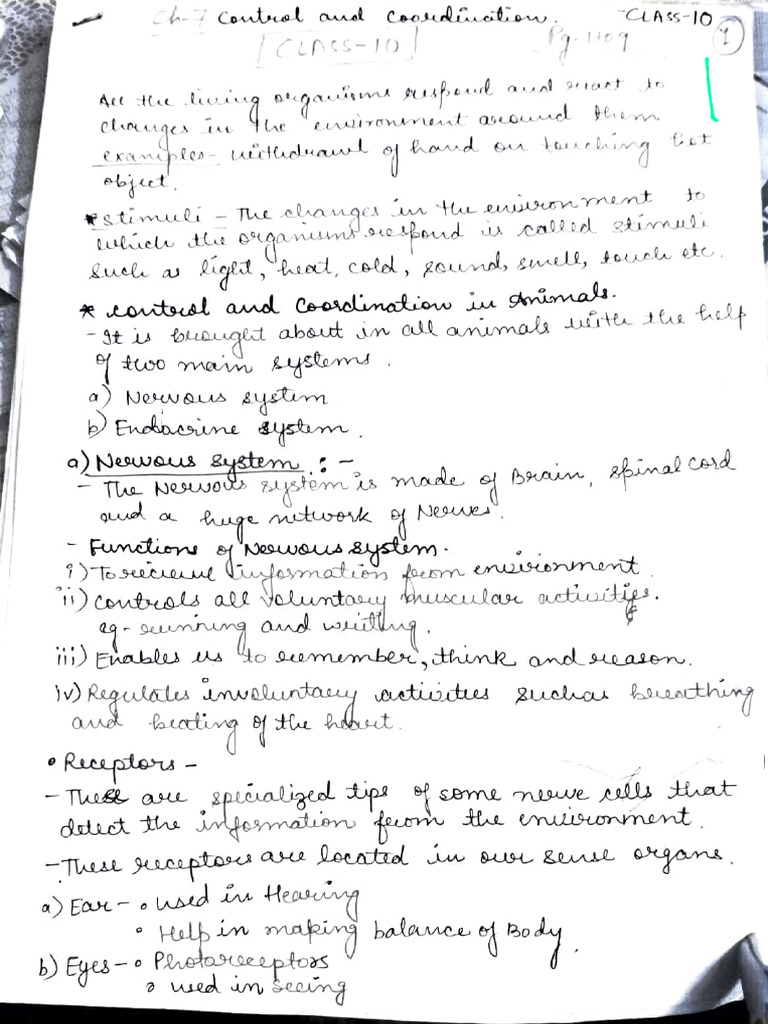 Ch-7 Control and Coordination. -CLASS-10
[CLASS-10] Pg-1109 1
All the living organisms respond and react to
changes in the environment around them
examples- withdrawl of hand on touching hot
object.
*stimuli - The changes in the environment to
which the organisms respond is called stimuli
such as light, heat, cold, sound, smell, touch etc.
* Control and Coordination in Animals.
- It is brought about in all animals with the help
of two main systems.
a) Nervous system
b) Endocrine system.
a) Nervous system :-
- The Nervous system is made of Brain, spinal cord
and a huge network of Nerves.
- Functions of Nervous system.
i) To recieve information from environment.
ii) Controls all voluntary muscular activities.
eg- running and writing.
iii) Enables us to remember, think and reason.
iv) Regulates involuntary activities such as breathing
and beating of the heart.
• Receptors -
- These are specialized tips of some nerve cells that
detect the information from the environment.
- These receptors are located in our sense organs.
a) Ear- • used in Hearing
• Help in making balance of Body.
b) Eyes- • Photoreceptors
• used in seeing